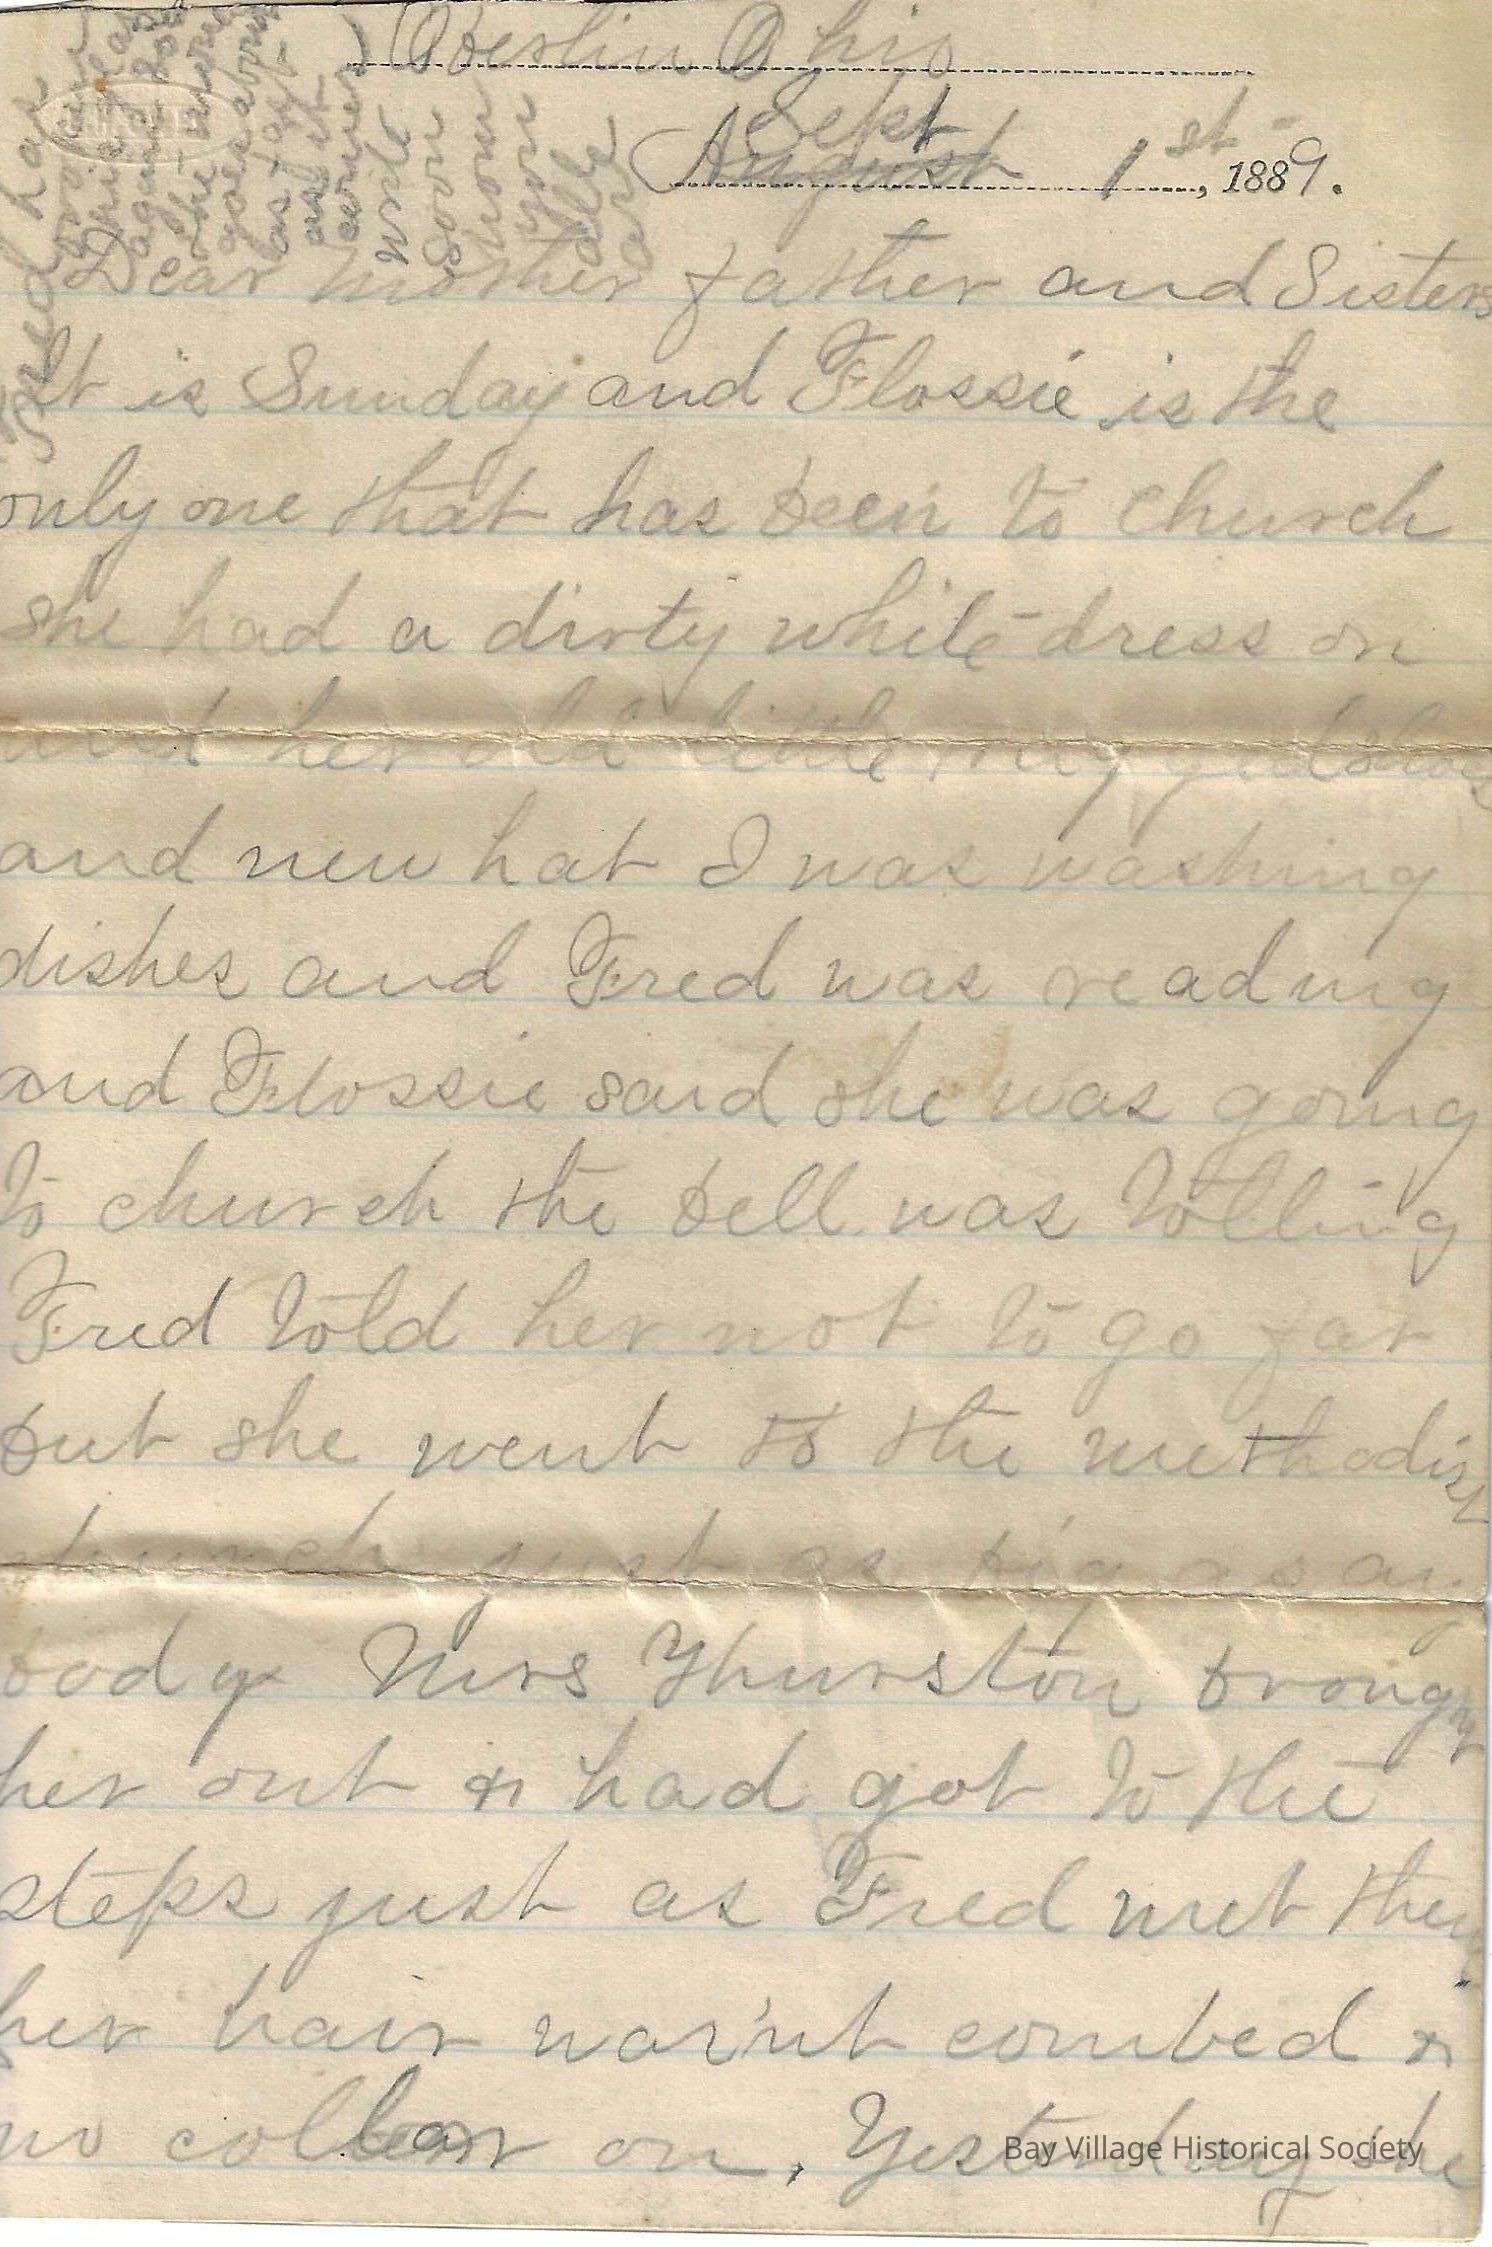 Oberlin Ohio
Sept
August 1st, 1889.
Dear mother father and Sisters
It is Sunday and Flossie is the
only one that has been to church
she had a dirty white dress on
and her old little ragged shoes
and new hat I was washing
dishes and Fred was reading
and Flossie said she was going
to church the bell was tolling
Fred told her not to go far
but she went to the methodist
church just as big as any
body Mrs Thurston brought
her out & had got to the
steps just as Fred met them
her hair warn't combed &
no collar on, Yesterday she
Fred has
again
the
goes
as
as it
corner
write
soon
how
you
all
are
Bay Village Historical Society